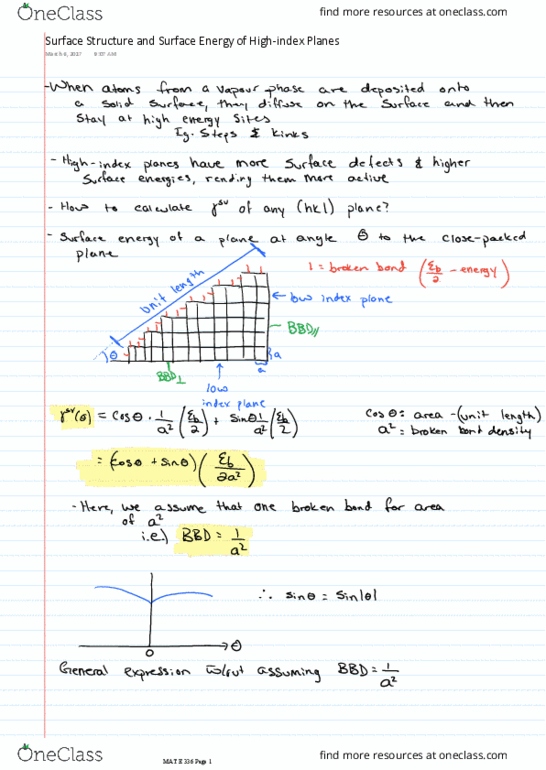 OneClass
find more resources at oneclass.com
Surface Structure and Surface Energy of High-index Planes
March 6, 2017 9:57 AM
-When atoms from a vapour phase are deposited onto
a solid surface, they diffuse on the surface and then
stay at high energy sites
Eg. Steps & kinks
- High-index planes have more surface defects & higher
surface energies, rending them more active
- How to calculate γ^sv of any (hkl) plane?
- Surface energy of a plane at angle θ to the close-packed
plane
unit length
1 = broken bond (εb/2 - energy)
← low index plane
BBD//
θ
a
a
BBD⊥
low
index plane
γ^sv(θ) = cosθ · 1/a² (εb/2) + sinθ 1/a² (εb/2)
cosθ: area -(unit length)
a² = broken bond density
= (cosθ + sinθ) (εb/2a²)
- Here, we assume that one broken bond for area
of a²
i.e.) BBD = 1/a²
∴ sinθ = sin|θ|
θ
0
General expression w/out assuming BBD = 1/a²
OneClass
MAT E 336 Page 1
find more resources at oneclass.com